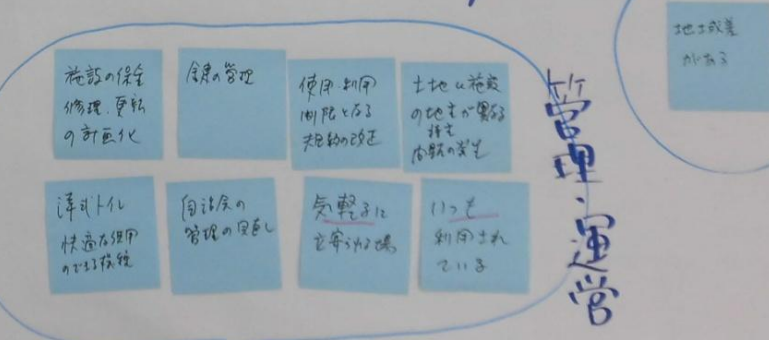 施設の保全
修理・更新
の計画化
鍵の管理
使用・利用
制限となる
規約の改正
土地と施設
の地主が異なる
問題の発生
洋式トイレ
快適な使用
のできる
自治会の
管理の見直し
気軽に
立寄られる場
いつも
利用され
ている
管理・運営
地域差
がある